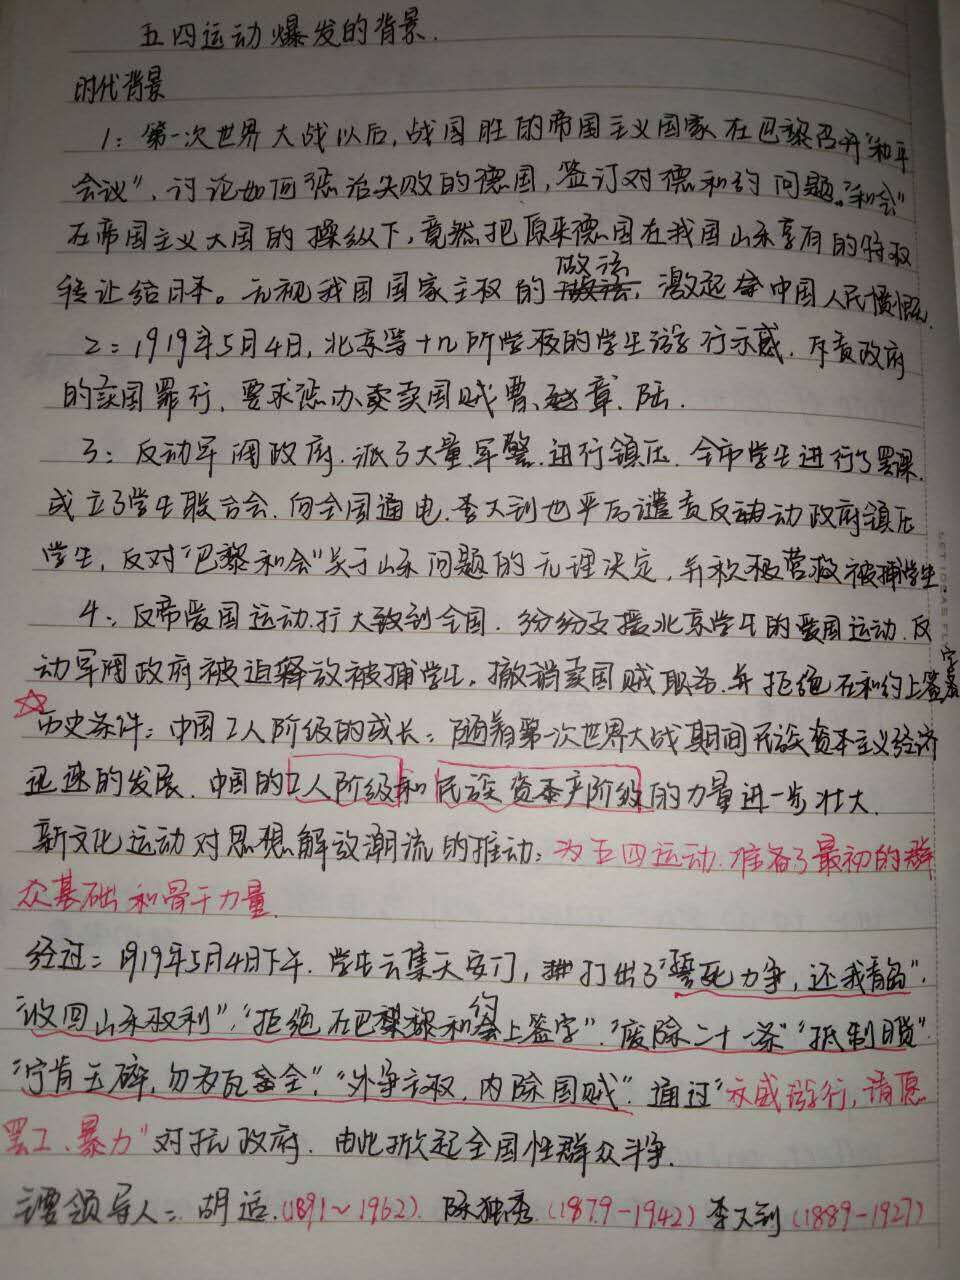 五四运动爆发的背景.
时代背景
1: 第一次世界大战以后,战国胜的帝国主义国家在巴黎召开“和平
会议”,讨论如何惩治失败的德国,签订对德和约问题。“和会”
在帝国主义大国的操纵下,竟然把原来德国在我国山东享有的特权
转让给日本。无视我国国家主权的做法,激起中国人民愤慨.
2: 1919年5月4日,北京等十几所学校的学生游行示威.斥责政府
的卖国罪行.要求惩办卖国贼曹.章.陆.
3: 反动军阀政府.派了大量军警.进行镇压.全市学生进行了罢课.
成立了学生联合会.向全国通电.李大钊也严厉谴责反动政府镇压
学生,反对“巴黎和会”关于山东问题的无理决定,并积极营救被捕学生.
4: 反帝爱国运动.扩大致到全国.纷纷支援北京学生的爱国运动.反
动军阀政府被迫释放被捕学生.撤消卖国贼职务.并拒绝在和约上签字.
历史条件: 中国工人阶级的成长: 随着第一次世界大战期间民族资本主义经济
迅速的发展.中国的工人阶级和民族资产阶级的力量进一步壮大.
新文化运动对思想解放潮流的推动: 为五四运动.准备了最初的群
众基础和骨干力量.
经过: 1919年5月4日下午.学生云集天安门,打出了“誓死力争,还我青岛”.
“收回山东权利”.“拒绝在巴黎和约上签字”.“废除二十一条”“抵制日货”.
“宁肯玉碎,勿为瓦全”.“外争主权,内除国贼”.通过“示威游行,请愿
罢工、暴力”对抗政府.由此掀起全国性群众斗争.
主要领导人: 胡适.(1891~1962) 陈独秀.(1879-1942) 李大钊(1889-1927)